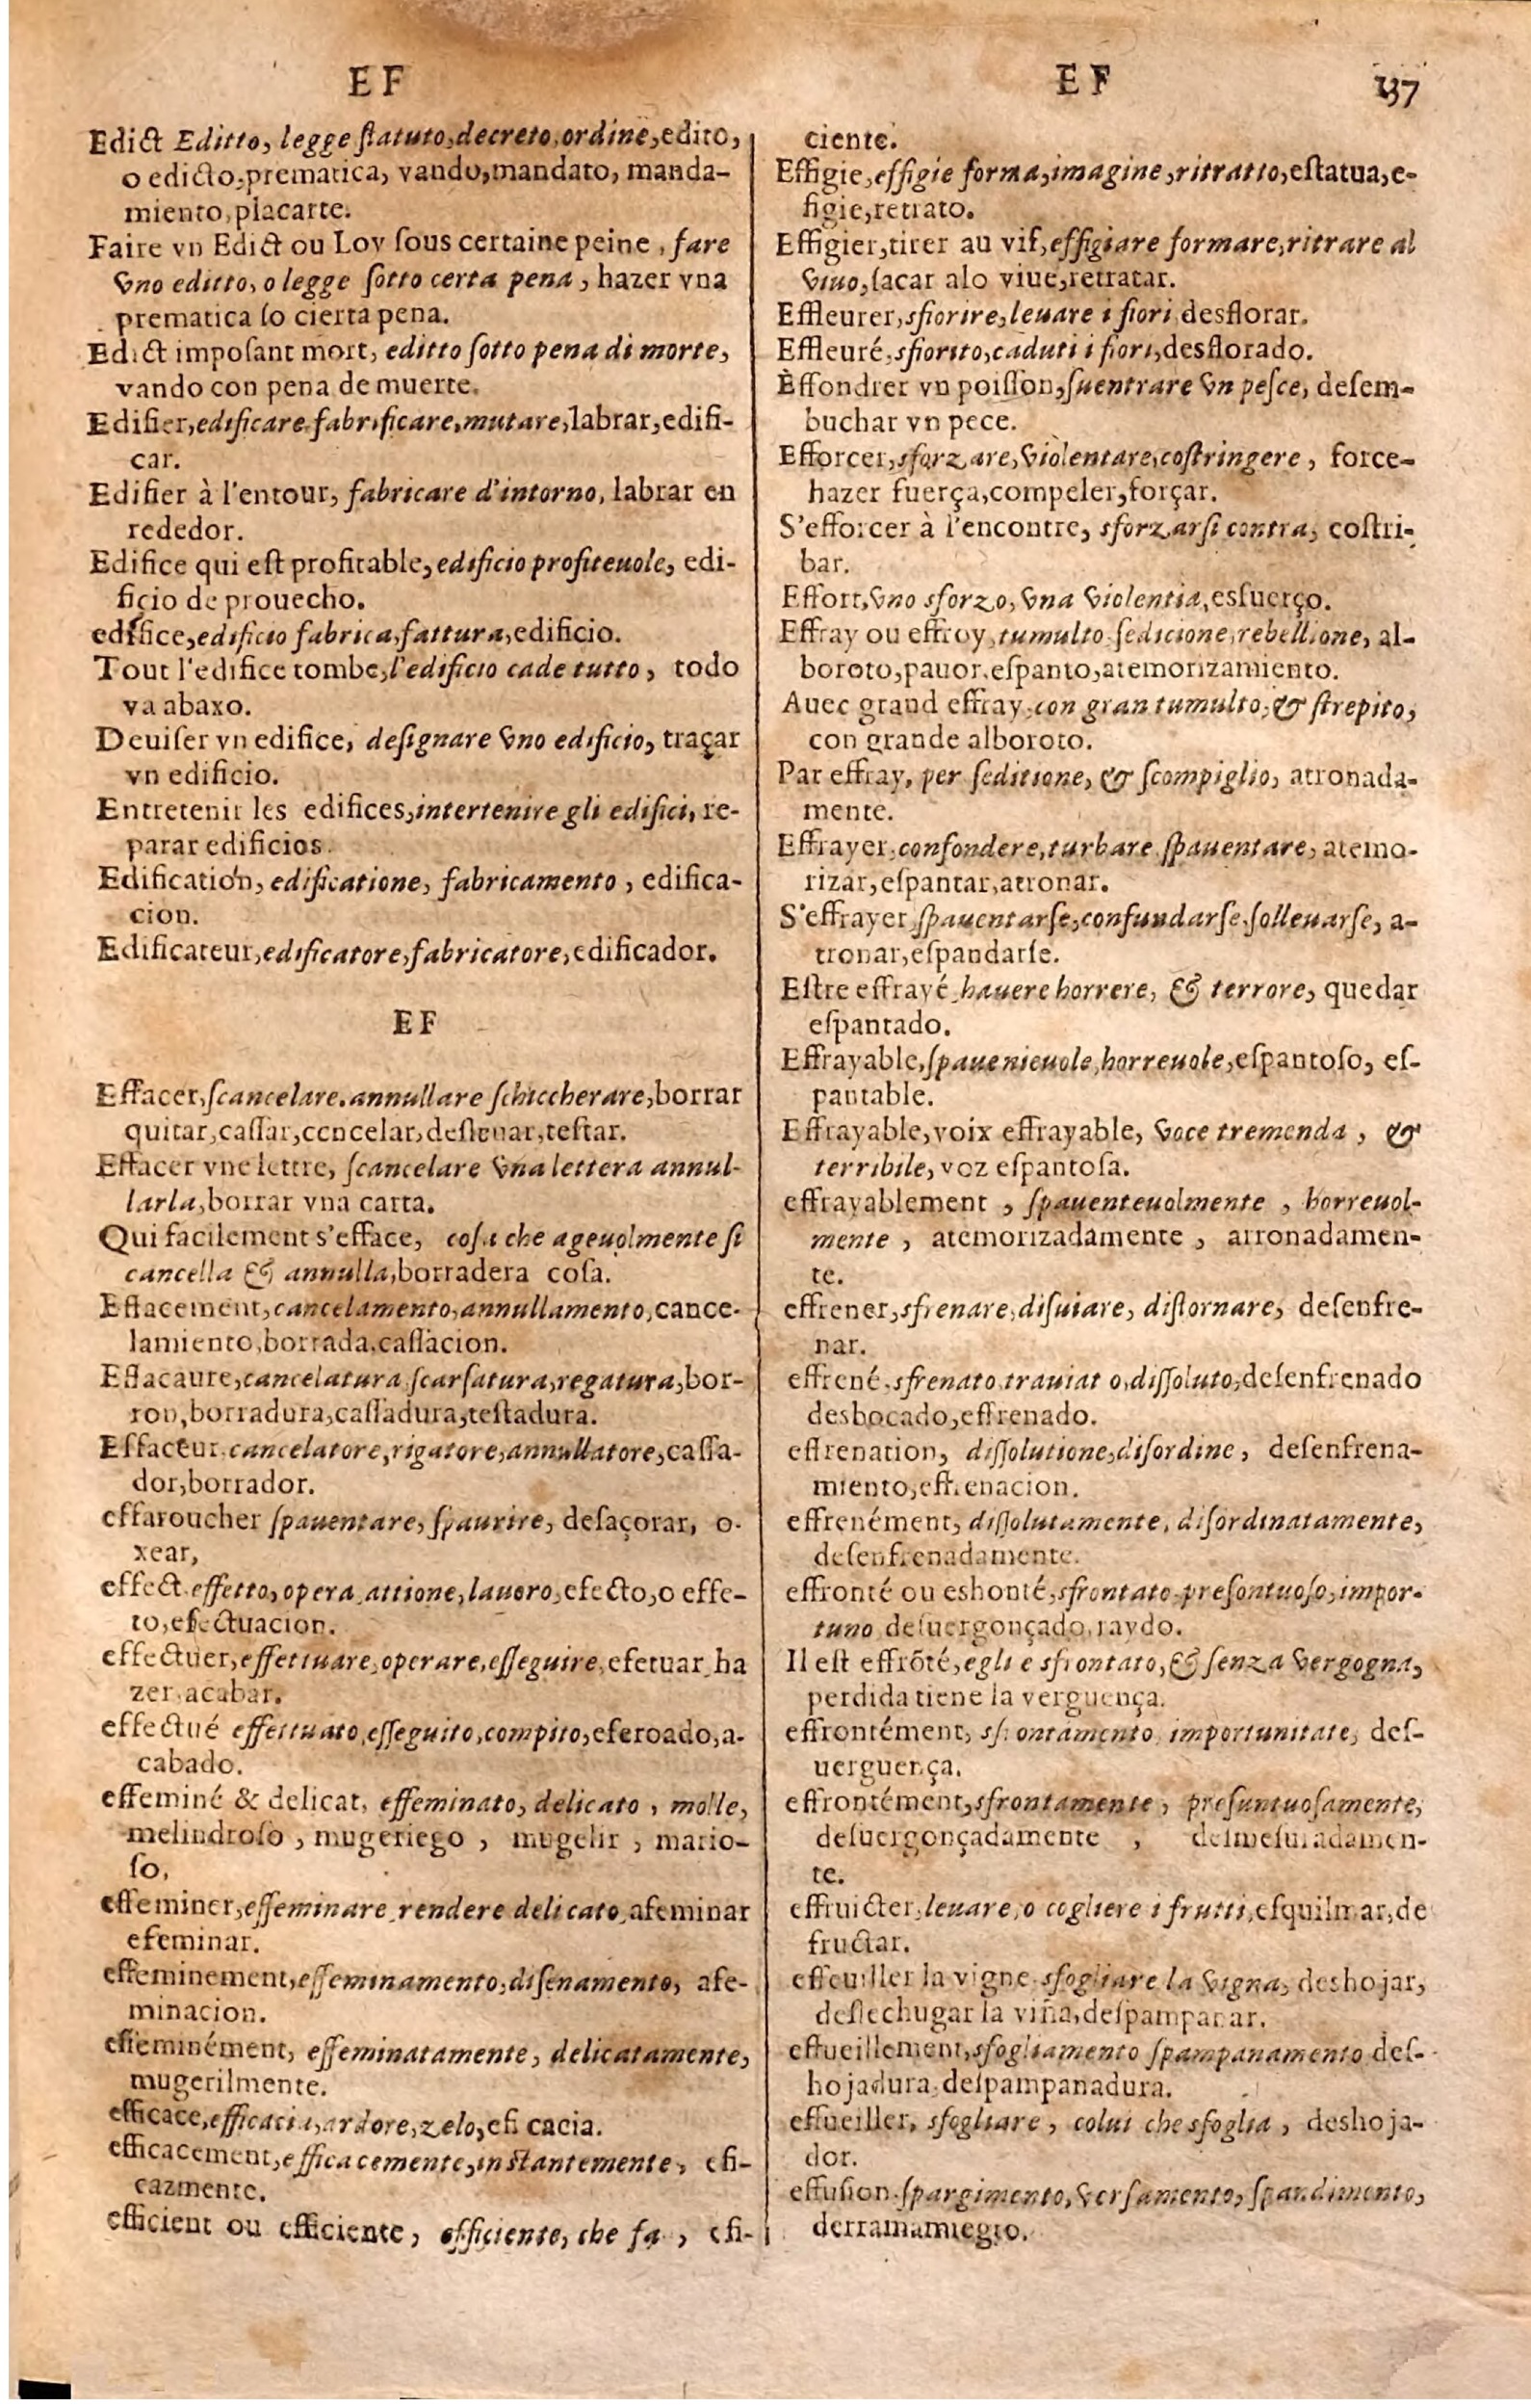 E F
Edict Editto, legge ſtatuto, decreto, ordine, edito,
o edicto, prematica, vando, mandato, manda-
miento, placarte.
Faire vn Edict ou Loy ſous certaine peine, fare
vno editto, o legge ſotto certa pena, hazer vna
prematica ſo cierta pena.
Edict impoſant mort, editto ſotto pena di morte,
vando con pena de muerte.
Edifier, edificare fabrificare, mutare, labrar, edifi-
car.
Edifier à l'entour, fabricare d'intorno, labrar en
rededor.
Edifice qui eſt profitable, edificio profiteuole, edi-
ficio de prouecho.
edifice, edificio fabrica, fattura, edificio.
Tout l'edifice tombe, l'edificio cade tutto, todo
va abaxo.
Deuiſer vn edifice, deſignare vno edificio, traçar
vn edificio.
Entretenir les edifices, intertenire gli edifici, re-
parar edificios.
Edification, edificatione, fabricamento, edifica-
cion.
Edificateur, edificatore, fabricatore, edificador.
E F
Effacer, ſcancelare. annullare ſchiccherare, borrar
quitar, caſſar, cencelar, desleuar, teſtar.
Effacer vne lettre, ſcancelare vna lettera annul-
larla, borrar vna carta.
Qui facilement s'efface, coſa che ageuolmente ſi
cancella & annulla, borradera coſa.
Effacement, cancelamento, annullamento, cance-
lamiento, borrada, caſſacion.
Effacaure, cancelatura ſcarſatura, regatura, bor-
ron, borradura, caſſadura, teſtadura.
Effaceur, cancelatore, rigatore, annullatore, caſſa-
dor, borrador.
effaroucher ſpauentare, ſpaurire, deſaçorar, o-
xear,
effect effetto, opera, attione, lauoro, efecto, o effe-
to, efectuacion.
effectuer, effettuare, operare, eſſeguire, efetuar ha
zer, acabar.
effectué effettuato, eſſeguito, compito, eferoado, a-
cabado.
effeminé & delicat, effeminato, delicato, molle,
melindroſo, mugeriego, mugelir, mario-
ſo,
effeminer, effeminare, rendere delicato, afeminar
efeminar.
effeminement, effeminamento, diſenamento, afe-
minacion.
effeminément, effeminatamente, delicatamente,
mugerilmente.
efficace, efficacia, ardore, zelo, efi cacia.
efficacement, effica cemente, inſtantemente, efi-
cazmente.
efficient ou efficiente, efficiente, che fa, efi-
E F 137
ciente.
Effigie, effigie forma, imagine, ritratto, eſtatua, e-
figie, retrato.
Effigier, tirer au vif, effigiare formare, ritrare al
viuo, ſacar alo viue, retratar.
Effleurer, sfiorire, leuare i fiori desflorar.
Effleuré, sfiorito, caduti i fiori, desflorado.
Effondrer vn poiſſon, ſuentrare vn peſce, deſem-
buchar vn pece.
Efforcer, sforzare, violentare, coſtringere, force-
hazer fuerça, compeler, forçar.
S'efforcer à l'encontre, sforzarſi contra, coſtri-
bar.
Effort, vno sforzo, vna violentia, esfuerço.
Effray ou effroy, tumulto ſedicione, rebellione, al-
boroto, pauor, eſpanto, atemorizamiento.
Auec grand effray, con gran tumulto, & ſtrepito,
con grande alboroto.
Par effray, per ſeditione, & ſcompiglio, atronada-
mente.
Effrayer, confondere, turbare ſpauentare, atemo-
rizar, eſpantar, atronar.
S'effrayer, ſpauentarſe, confundarſe, ſolleuarſe, a-
tronar, eſpandarſe.
Eſtre effrayé, hauere horrere, & terrore, quedar
eſpantado.
Effrayable, ſpauenieuole, horreuole, eſpantoſo, eſ-
pantable.
Effrayable, voix effrayable, voce tremenda, &
terribile, voz eſpantoſa.
effrayablement, ſpauenteuolmente, horreuol-
mente, atemorizadamente, arronadamen-
te.
effrener, sfrenare, diſuiare, diſtornare, deſenfre-
nar.
effrené, sfrenato, trauiat o, diſſoluto, deſenfrenado
desbocado, effrenado.
effrenation, diſſolutione, diſordine, deſenfrena-
miento, effrenacion.
effrenément, diſſolutamente, diſordinatamente,
deſenfrenadamente.
effronté ou eshonté, sfrontato, preſontuoſo, impor-
tuno deſuergonçado, raydo.
Il eſt effrōté, egli e sfrontato, & ſenza vergogna,
perdida tiene la verguença.
effrontément, sfrontamento, importunitate, deſ-
uerguença.
effrontément, sfrontamente, preſuntuoſamente,
deſuergonçadamente, deſmeſuradamen-
te.
effruicter, leuare, o cogliere i frutti, eſquilmar, de
fructar.
effeuiller la vigne, sfogliare la vigna, deshojar,
deslechugar la viña, deſpampanar.
effueillement, sfogliamento ſpampanamento deſ-
hojadura, deſpampanadura.
effueiller, sfogliare, colui che sfoglia, deshoja-
dor.
effuſion ſpargimento, verſamento, ſpandimento,
derramamiegto.